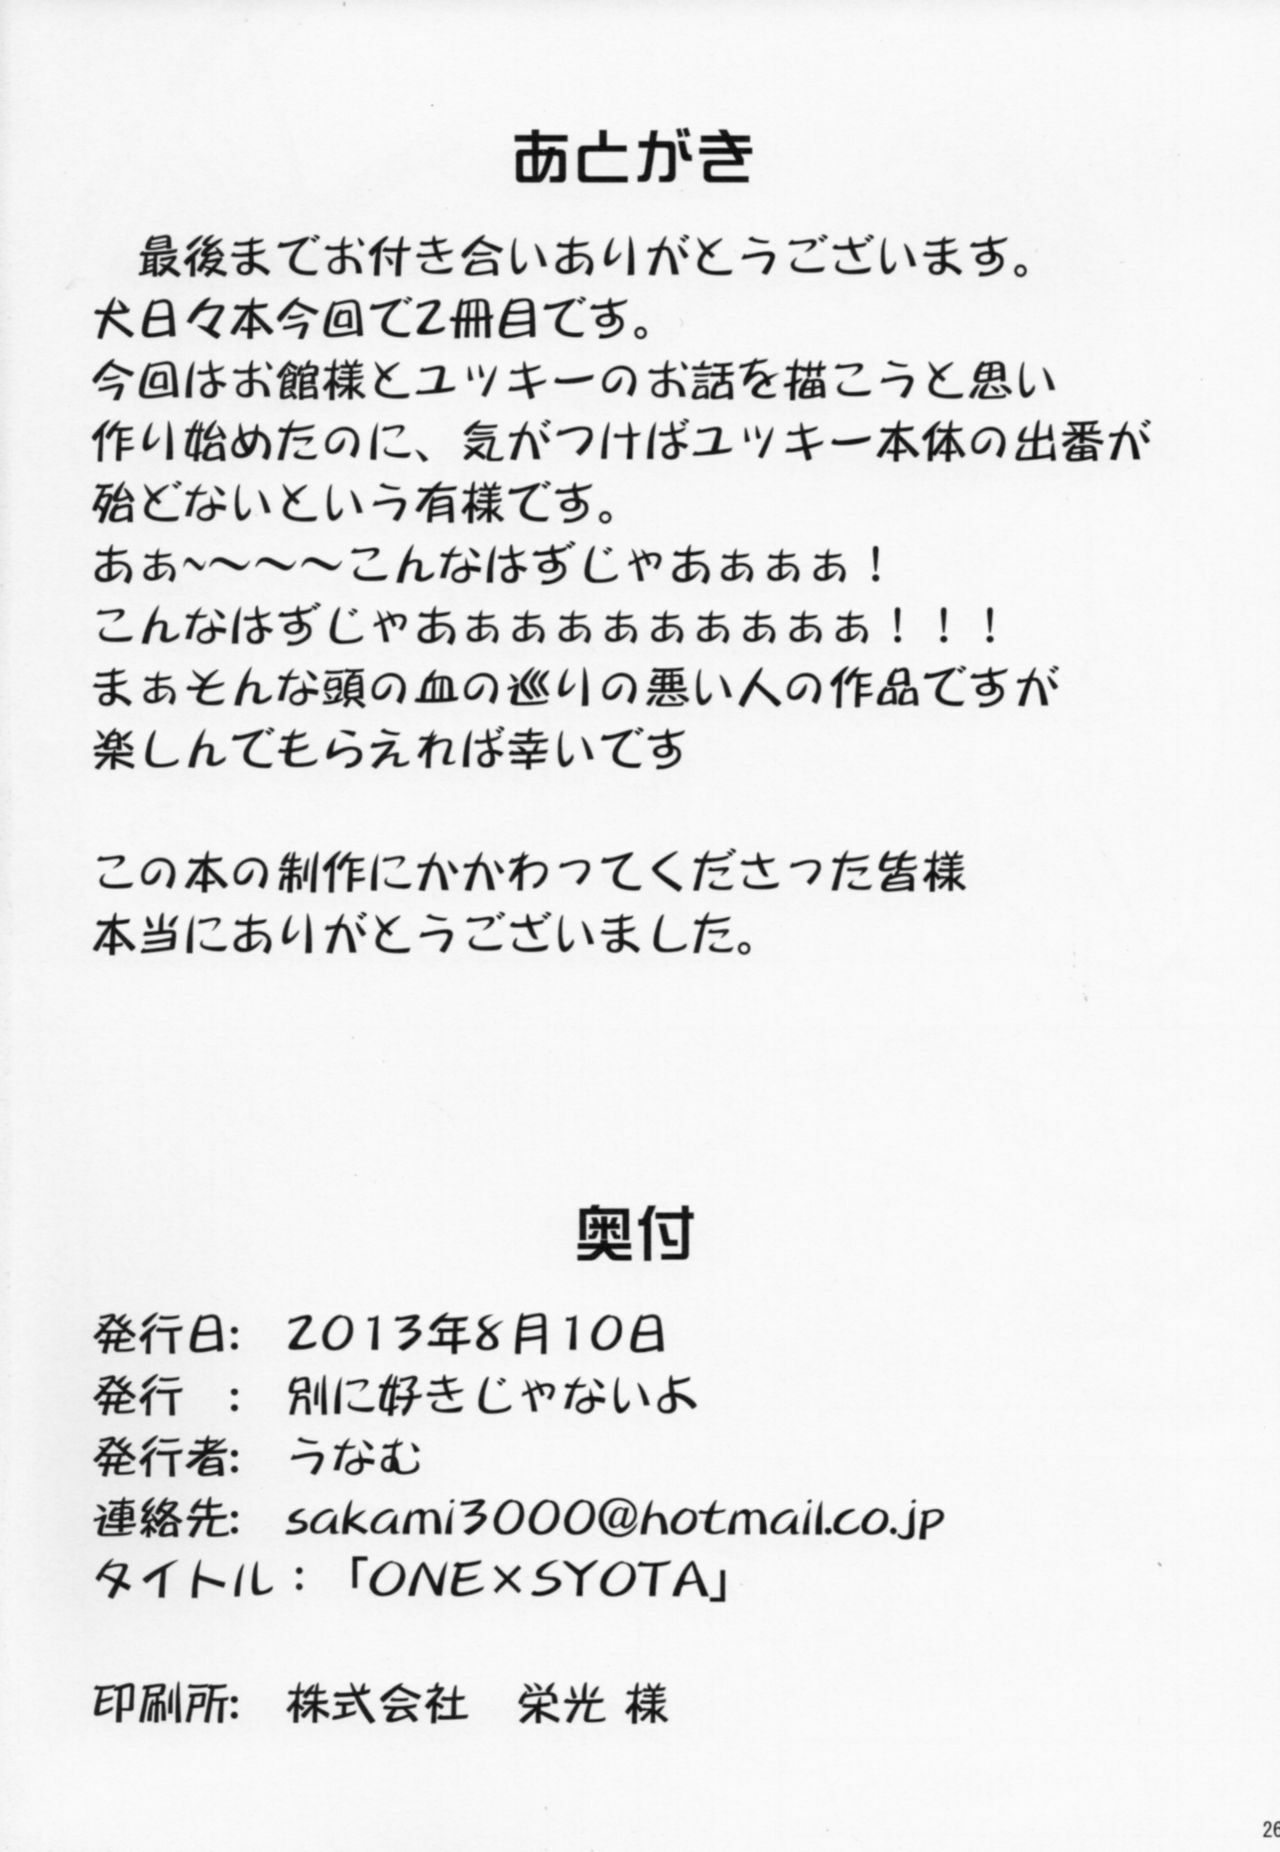 あとがき
最後までお付き合いありがとうございます。
犬日々本今回で2冊目です。
今回はお館様とユッキーのお話を描こうと思い
作り始めたのに、気がつけばユッキー本体の出番が
殆どないという有様です。
あぁ~～～～こんなはずじゃあぁぁぁ！
こんなはずじゃあぁぁぁぁぁぁぁぁぁ！！！
まぁそんな頭の血の巡りの悪い人の作品ですが
楽しんでもらえれば幸いです
この本の制作にかかわってくださった皆様
本当にありがとうございました。
奥付
発行日:　2013年8月10日
発行　:　別に好きじゃないよ
発行者:　うなむ
連絡先:　sakami3000@hotmail.co.jp
タイトル：「ONE×SYOTA」
印刷所:　株式会社　栄光 様
26